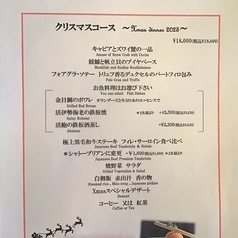 クリスマスコース ～Xmas dinner 2025～
¥18,000(税込¥19,800)
キャビアとズワイ蟹の一品
Amuse of Snow Crab with Caviar
鮟鱇と帆立貝のブイヤベース
Monkfish and Scallop Bouillabaisse
フォアグラ・ソテー トリュフ香るデュクセルのパートフィロ包み
Foie Gras and Truffe
お魚料理はお選び下さい
You can select Fish Dishes
金目鯛のポワレ オランデーズと
Grilled Red Bream
活伊勢海老の鉄板焼 +¥3,500(税込¥3,850)
Spiny Robster
活鮑の鉄板酒蒸し +¥3,500(税込¥3,850)
Abalone
極上黒毛和牛ステーキ フィレ・サーロイン食べ比べ
Japanese Beef Tenderloin & Sirloin
＊シャトーブリアンに変更
Japanese Beef Premium Tenderloin
焼野菜 サラダ
Grilled Vegetable & Salad
白御飯 赤出汁 香の物
Steamed rice, Miso soup, Japanese pickles
Xmasスペシャルデザート
Dessert
コーヒー 又は 紅茶
Coffee or Tea